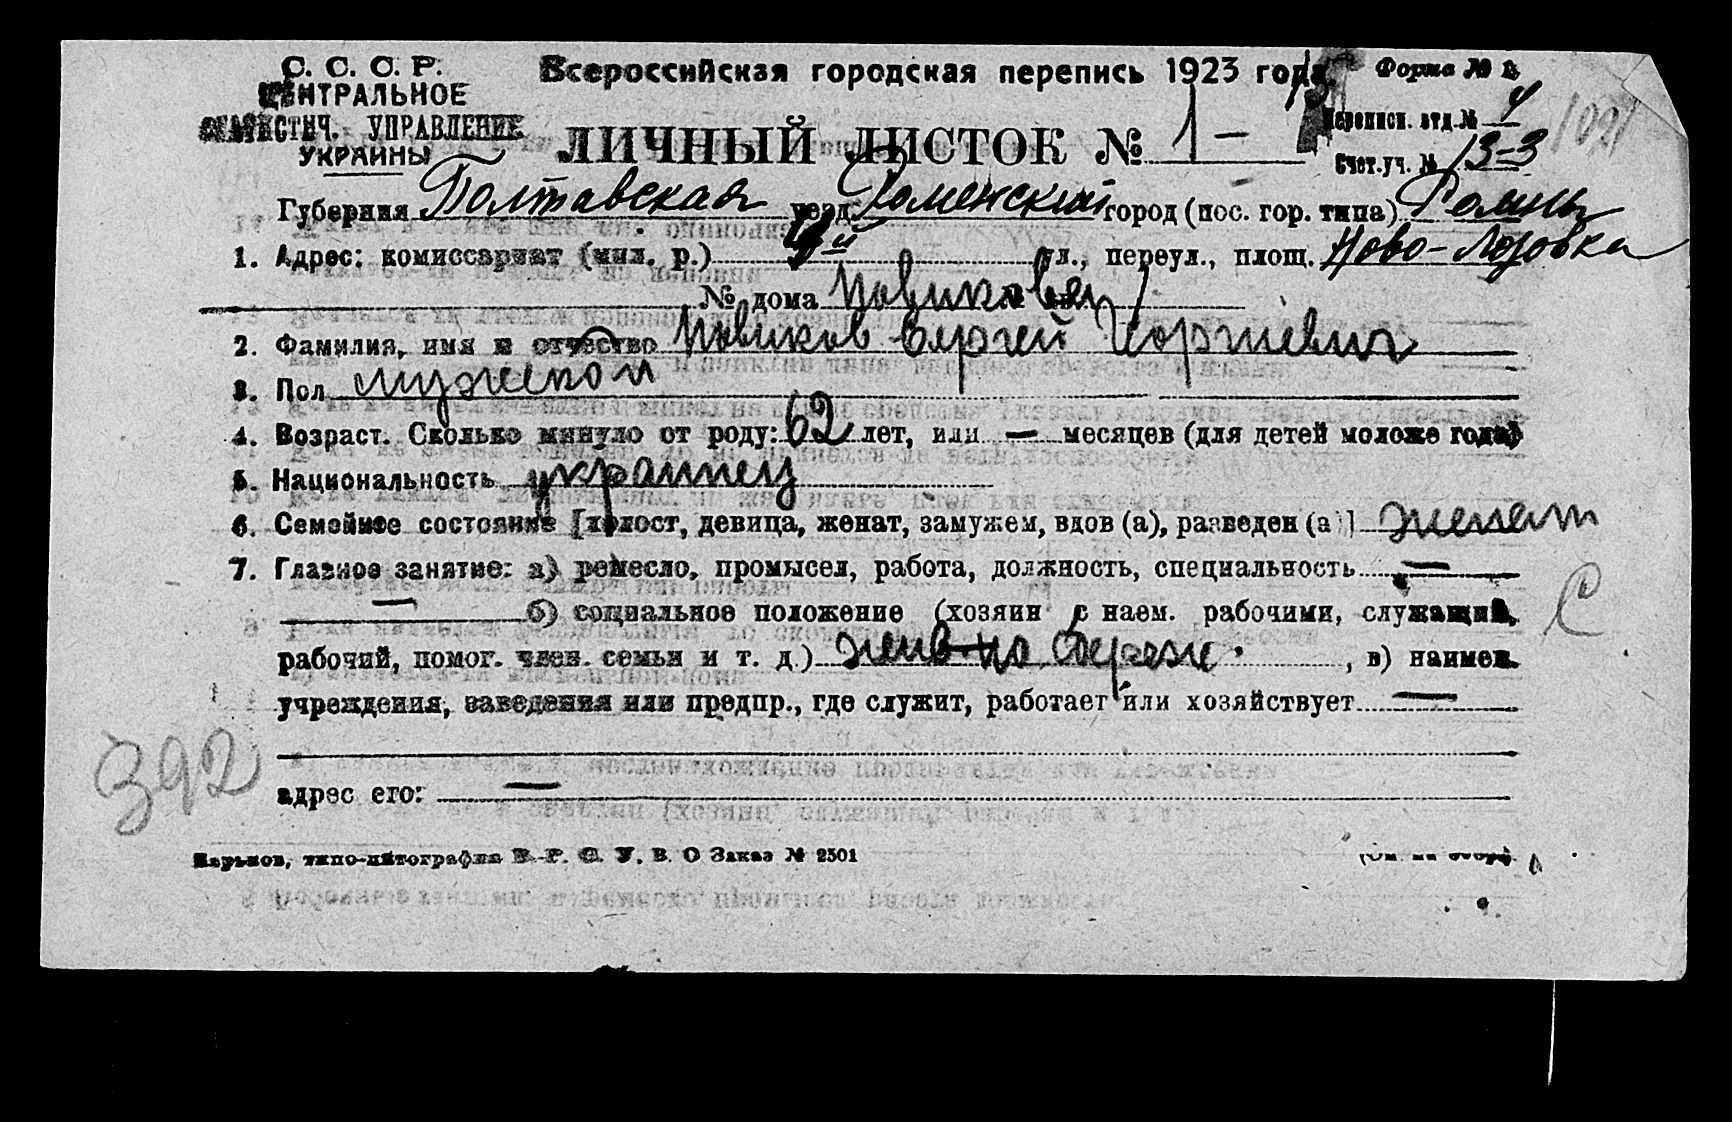 С. С. С. Р.
ЦЕНТРАЛЬНОЕ
СТАТИСТИЧ. УПРАВЛЕНИЕ
УКРАИНЫ
Всероссийская городская перепись 1923 года.
Форма № 1
ЛИЧНЫЙ ЛИСТОК № 1 –
Переписн. отд. № 4
Счет. уч. № 13-3
Губерния Полтавская уезд Роменский город (пос. гор. типа) Ромны
1. Адрес: комиссариат (мил. р.) ул., переул., площ. Ново-Лозовка
№ дома Новикова
2. Фамилия, имя и отчество Новиков Сергей Георгиевич
3. Пол мужской
4. Возраст. Сколько минуло от роду: 62 лет, или — месяцев (для детей моложе года)
5. Национальность украинец
6. Семейное состояние [холост, девица, женат, замужем, вдов (а), разведен (а)] женат
7. Главное занятие: а) ремесло, промысел, работа, должность, специальность —
— б) социальное положение (хозяин с наем. рабочими, служащий,
рабочий, помог. член. семьи и т. д.) , в) наимен.
учреждения, заведения или предпр., где служит, работает или хозяйствует —
адрес его: —
392
С
Харьков, типо-литография В. О Заказ № 2501
(См. на обор.)